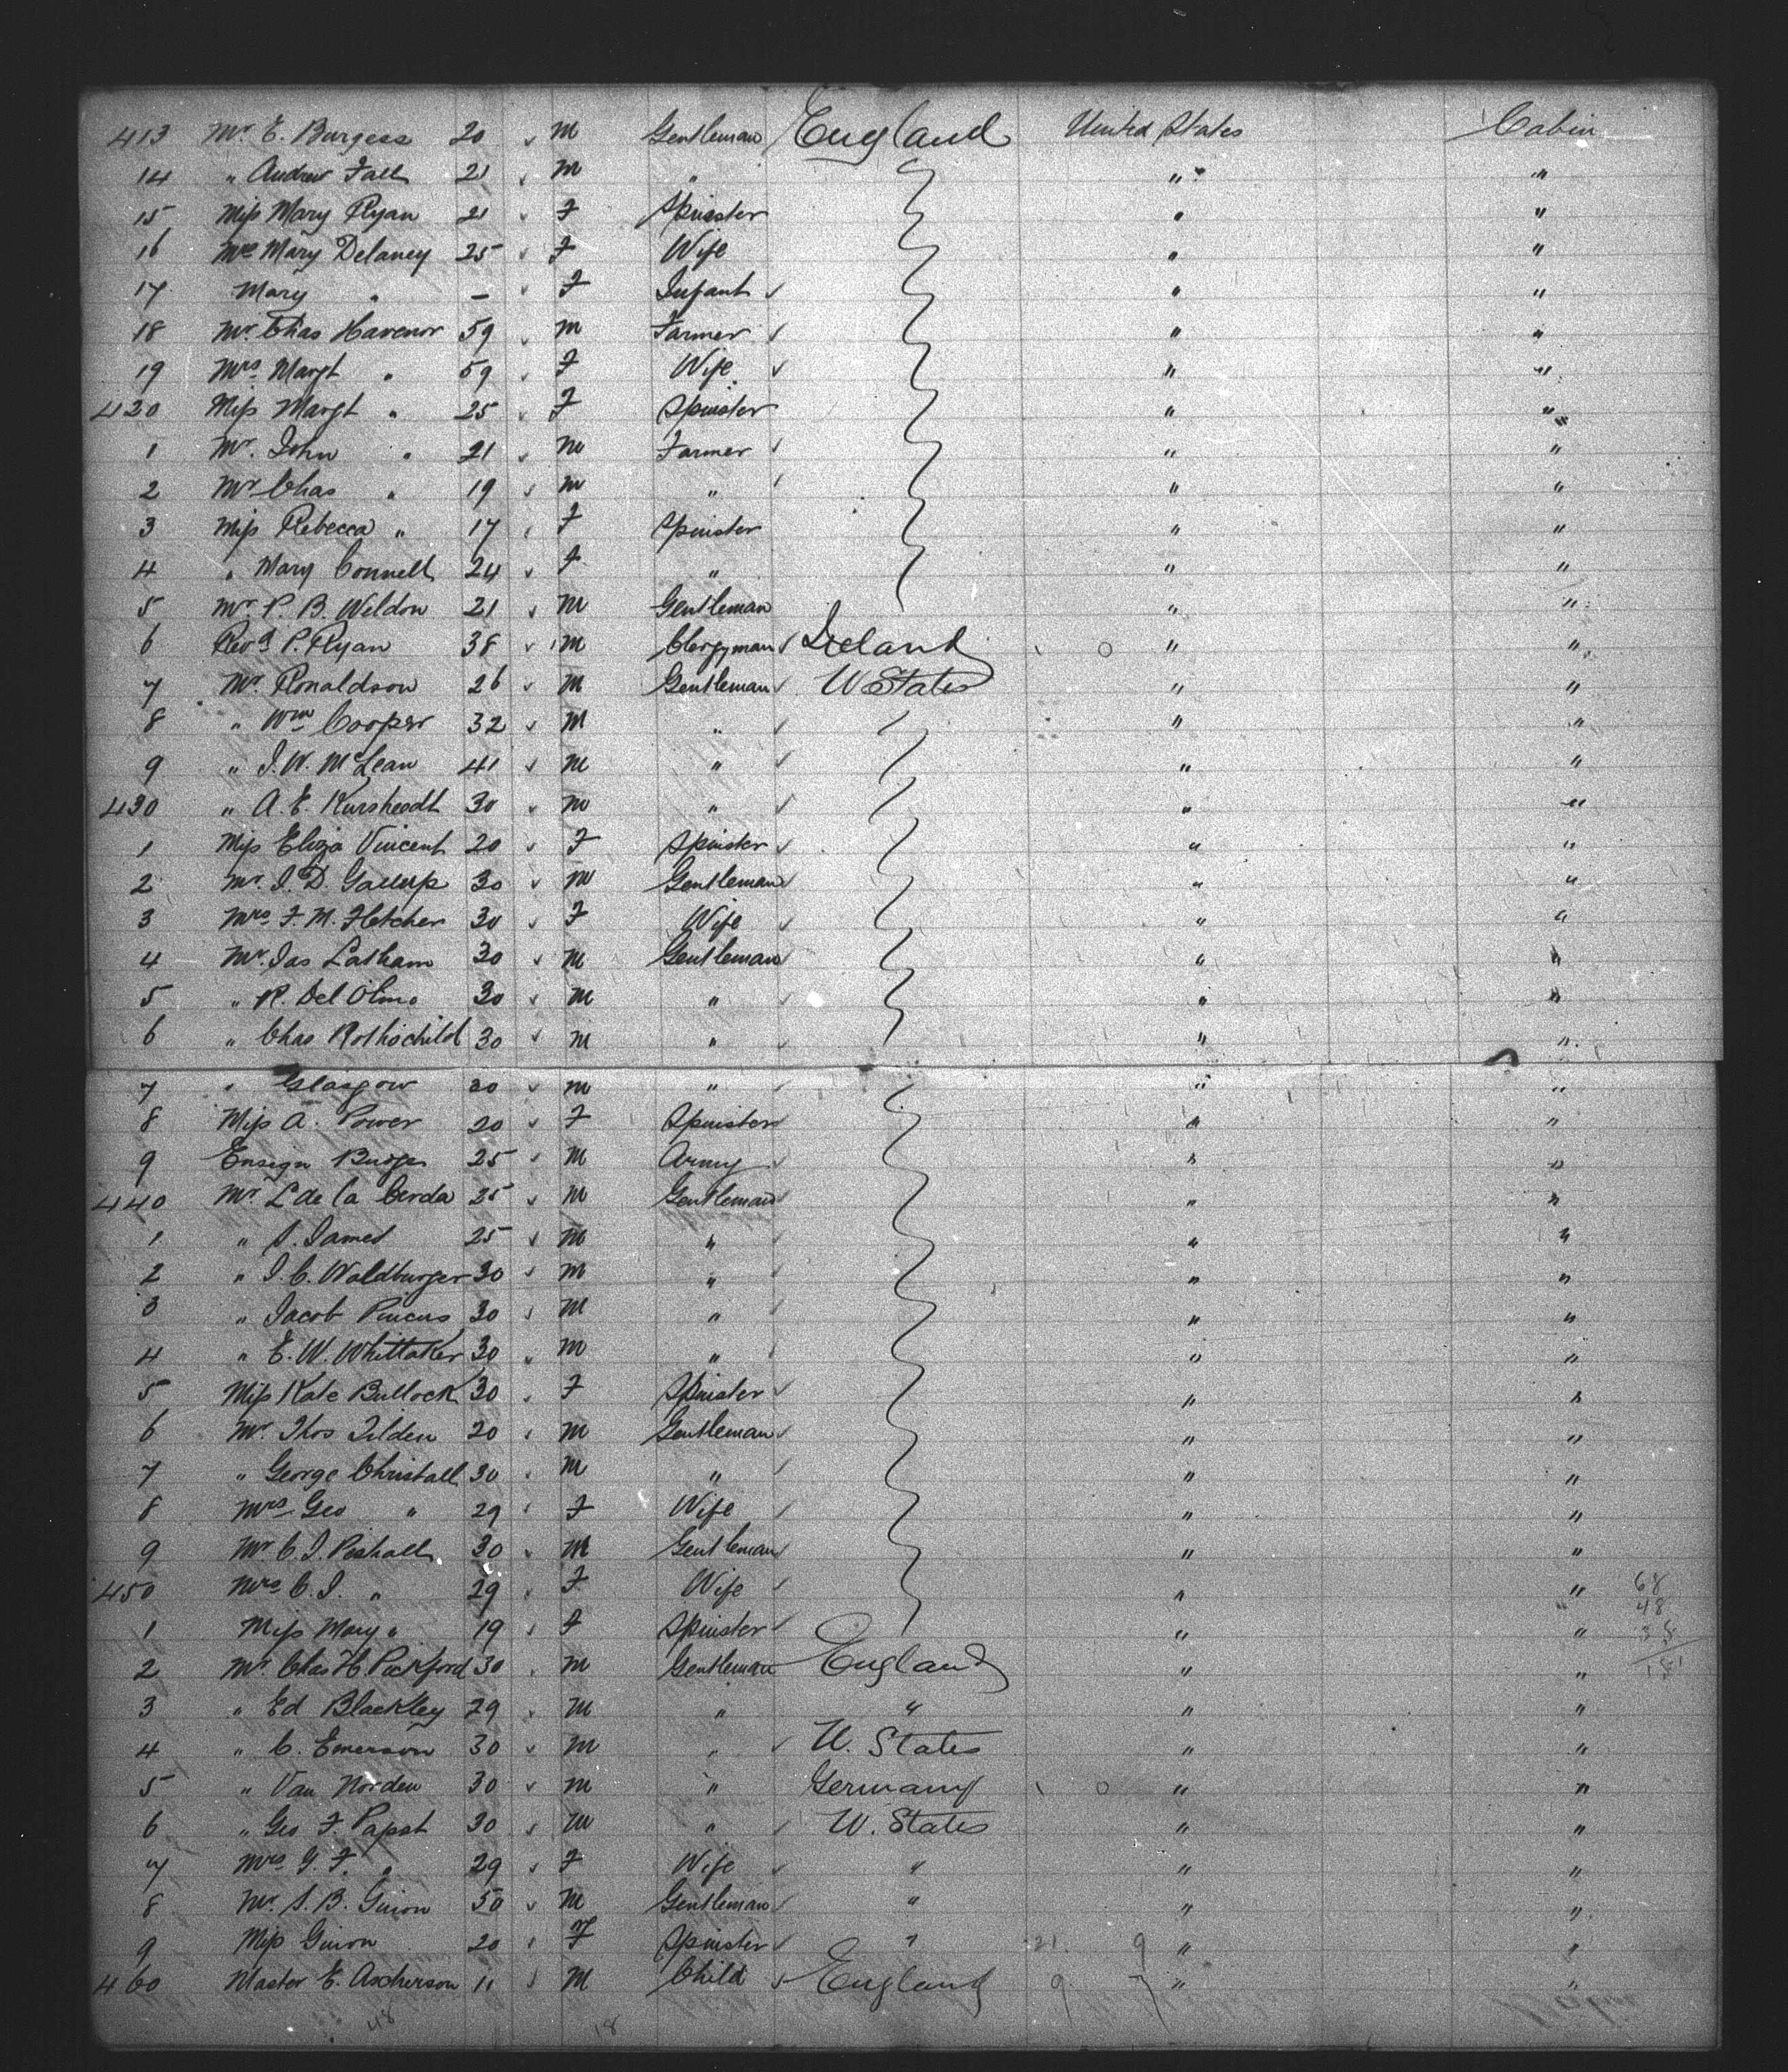 413 Mr. E. Burgess 20 M Gentleman England United States Cabin
14 " Andrew Fall 21 M " " "
15 Miss Mary Ryan 21 F Spinster " "
16 Mrs Mary Delaney 25 F Wife " "
17 Mary " – F Infant " "
18 Mr. Chas Havenor 59 M Farmer " "
19 Mrs Margt " 59 F Wife " "
420 Miss Margt " 25 F Spinster " "
1 Mr. John " 21 M Farmer " "
2 Mr Chas " 19 M " " "
3 Miss Rebecca " 17 F Spinster " "
4 " Mary Connell 24 F " " "
5 Mr P. B. Weldon 21 M Gentleman " "
6 Revd P. Ryan 38 M Clergyman Ireland " "
7 Mr. Ronaldson 26 M Gentleman U States " "
8 " Wm Cooper 32 M " " "
9 " J. W. McLean 41 M " " "
430 " A. E. Kursheedt 30 M " " "
1 Miss Eliza Vincent 20 F Spinster " "
2 Mr. J. D. Gallup 30 M Gentleman " "
3 Mrs F. M. Fletcher 30 F Wife " "
4 Mr. Jas Latham 30 M Gentleman " "
5 " R. Del Olmo 30 M " " "
6 " Chas Rothschild 30 M " " "
7 " Glasgow 30 M " " "
8 Miss A. Power 20 F Spinster " "
9 Ensign Budge 25 M Army " "
440 Mr L de la Cerda 25 M Gentleman " "
1 " S. James 25 M " " "
2 " J. C. Waldburger 30 M " " "
3 " Jacob Pincus 30 M " " "
4 " E. W. Whittaker 30 M " " "
5 Miss Kate Bullock 30 F Spinster " "
6 Mr. Thos Tilden 20 M Gentleman " "
7 " George Christall 30 M " " "
8 Mrs Geo " 29 F Wife " "
9 Mr C. J. Peshall 30 M Gentleman " "
450 Mrs C. J. " 29 F Wife " " 68
48
1 Miss Mary " 19 F Spinster " "
2 Mr Chas H. Pickford 30 M Gentleman England " "
3 " Ed Blackley 29 M " " " "
4 " C. Emerson 30 M " U. States " "
5 " Van Norden 30 M " Germany " "
6 " Geo F. Papst 30 M " U. States " "
7 Mrs G. F. " 29 F Wife " " "
8 Mr. S. B. Guion 50 M Gentleman " " "
9 Miss Guion 20 F Spinster " 21 9 " "
460 Master E. Ascherson 11 M Child England 9 7 " "
48 18